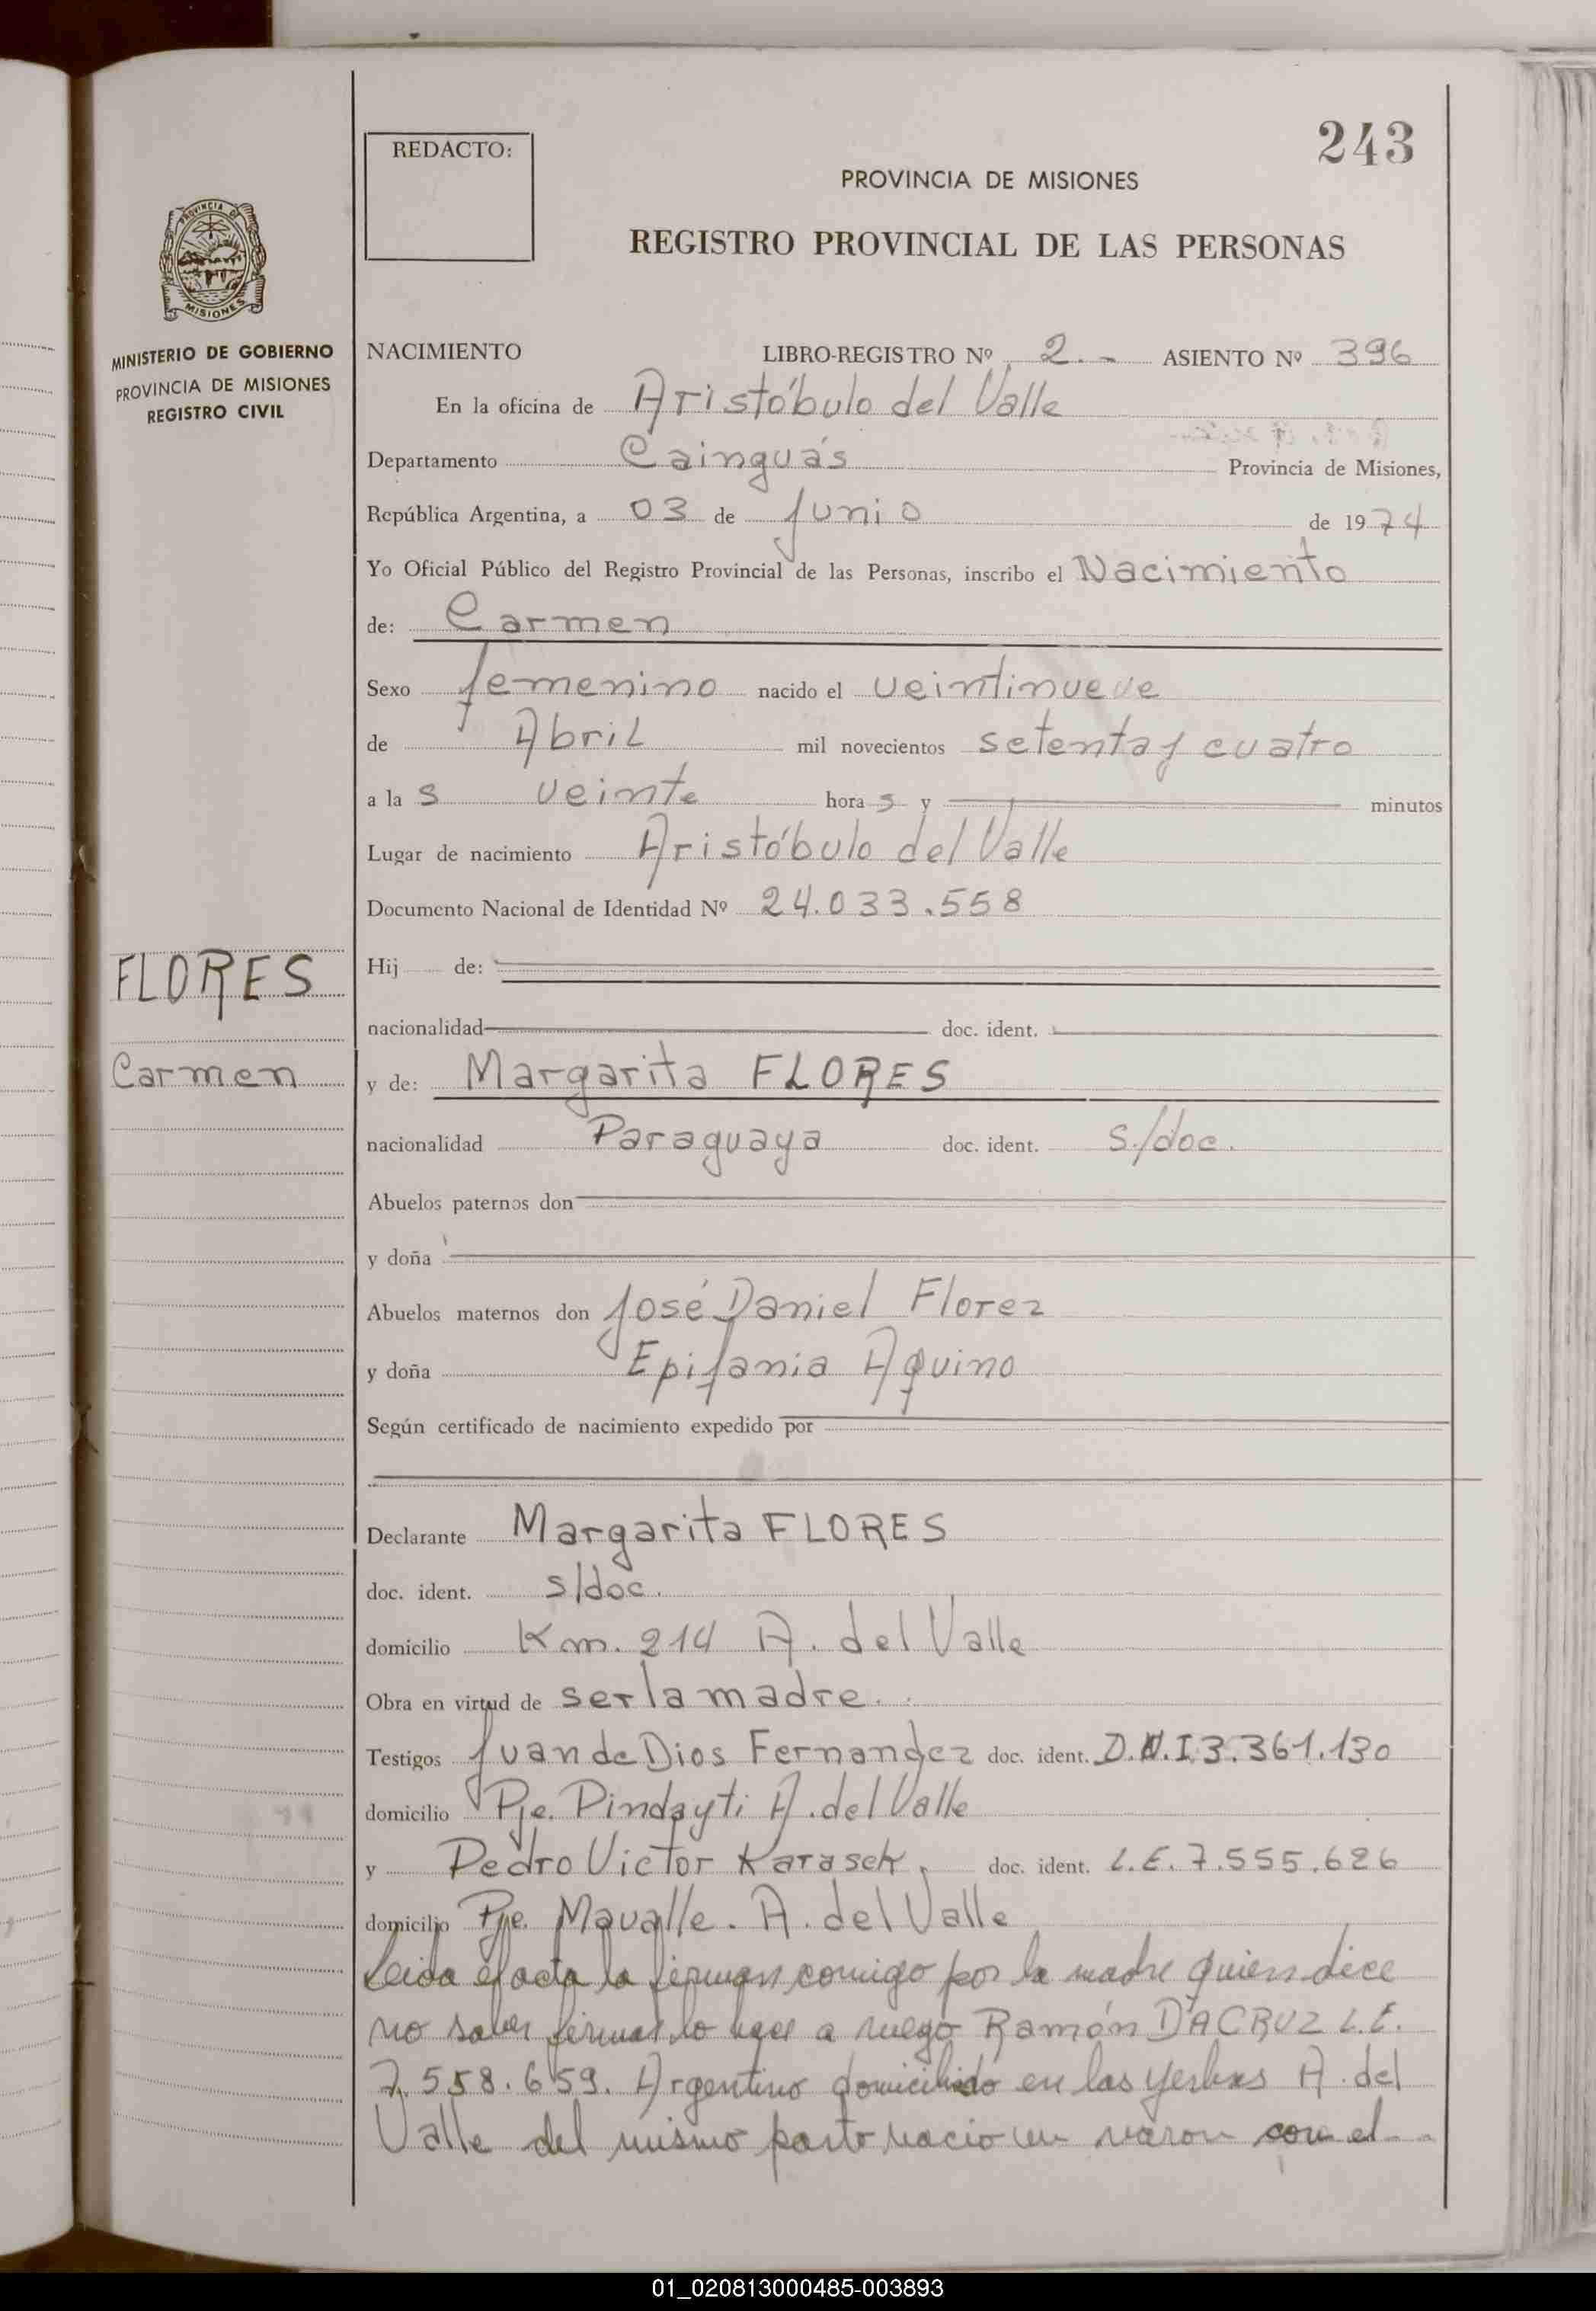 243
REDACTO:
PROVINCIA DE MISIONES
REGISTRO PROVINCIAL DE LAS PERSONAS
PROVINCIA DE
MISIONES
MINISTERIO DE GOBIERNO
PROVINCIA DE MISIONES
REGISTRO CIVIL
NACIMIENTO LIBRO-REGISTRO Nº 2.- ASIENTO Nº 396
En la oficina de Aristóbulo del Valle
Departamento Cainguás Provincia de Misiones,
República Argentina, a 03 de Junio de 1974
Yo Oficial Público del Registro Provincial de las Personas, inscribo el Nacimiento
de: Carmen
Sexo femenino nacido el veintinueve
de Abril mil novecientos setenta y cuatro
a la s veinte hora s y minutos
Lugar de nacimiento Aristóbulo del Valle
Documento Nacional de Identidad Nº 24.033.558
FLORES
Carmen
Hij de:
nacionalidad doc. ident.
y de: Margarita FLORES
nacionalidad Paraguaya doc. ident. s./doc.
Abuelos paternos don
y doña
Abuelos maternos don José Daniel Florez
y doña Epifania Aquino
Según certificado de nacimiento expedido por
Declarante Margarita FLORES
doc. ident. s/doc.
domicilio Km. 214 A. del Valle
Obra en virtud de ser la madre.
Testigos Juan de Dios Fernandez doc. ident. D.N.I.3.361.130
domicilio Pje. Pindayti A. del Valle
y Pedro Victor Karasek, doc. ident. L.E. 7.555.626
domicilio Pje. Mavalle. A. del Valle
Leida el acta la firman comigo por la madre quien dice
no saber firmar lo hace a ruego Ramón DÁCRUZ L.E.
7.558.659. Argentino domiciliado en las yerbas A. del
Valle del mismo parto nacio un varon con el-
01_020813000485-003893